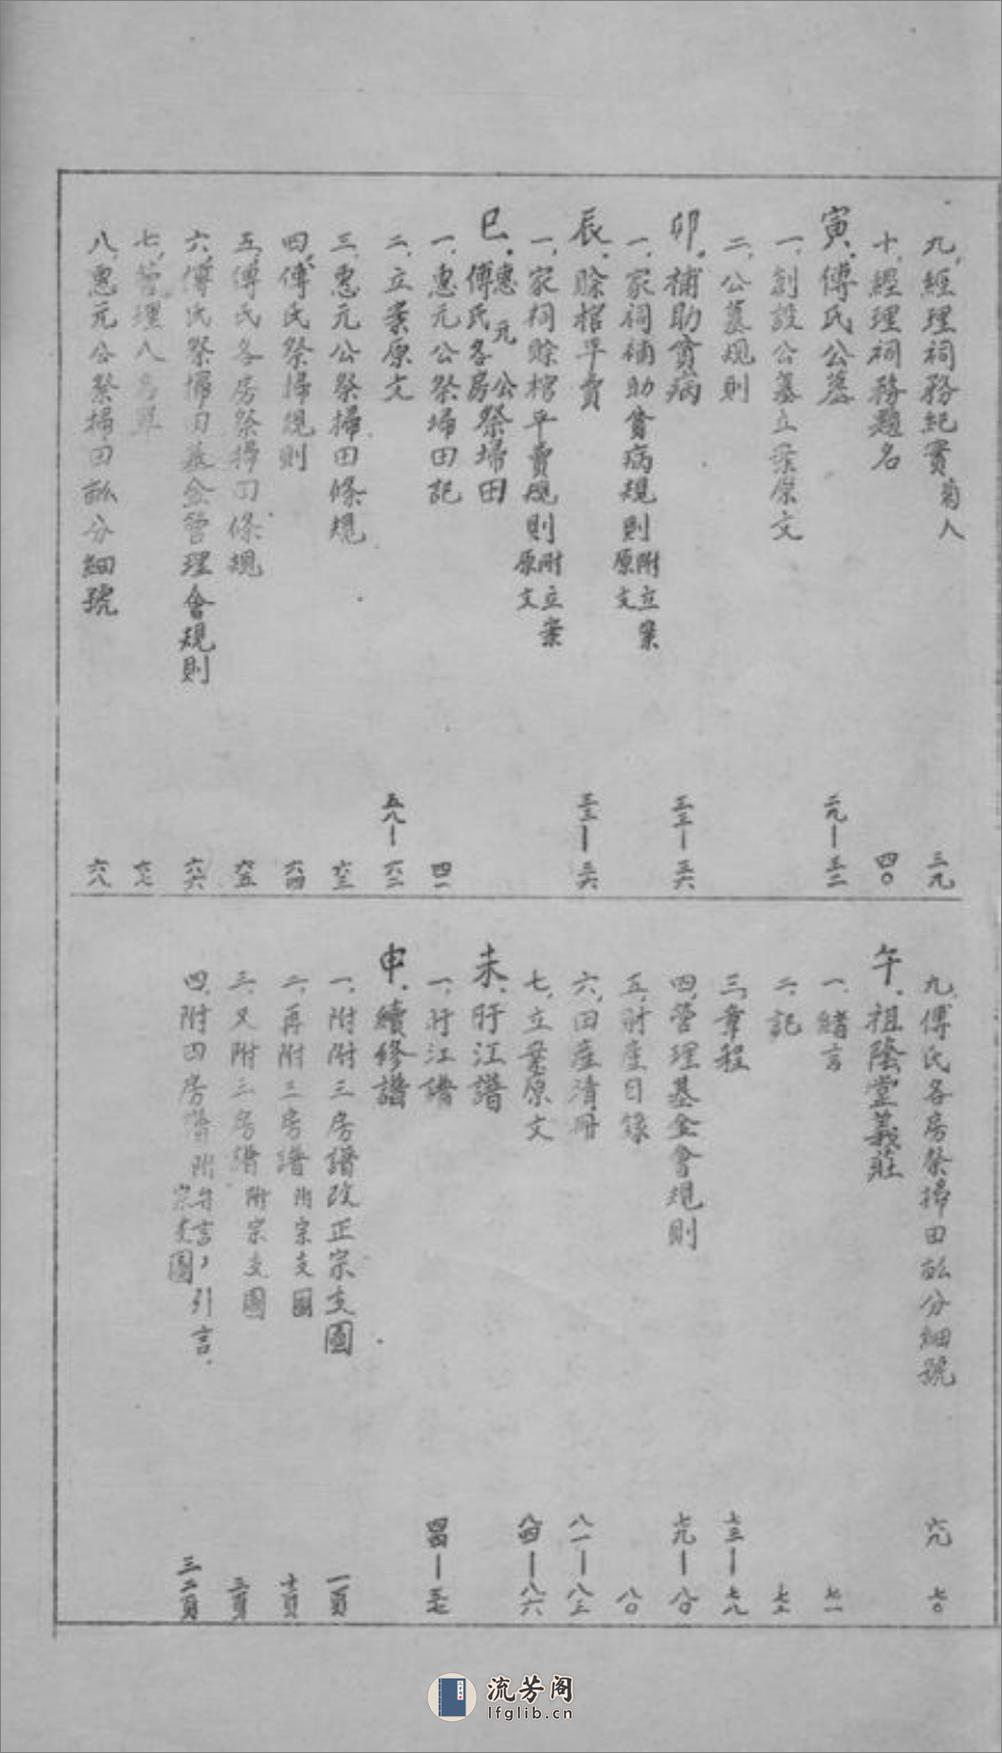 九、經理祠務紀實 菊人 三九
十、經理祠務題名 四〇
寅、傅氏公墓 二九—三二
一、創設公墓立案原文
二、公墓規則
卯、補助貧病 三三—三六
一、家祠補助貧病規則 附立案原文
辰、賒棺平賣 三三—三六
一、家祠賒棺平賣規則 附立案原文
巳、惠元公 傅氏各房 祭掃田
一、惠元公祭掃田記 四一
二、立案原文 五八—六二
三、惠元公祭掃田條規 六三
四、傅氏祭掃規則 六四
五、傅氏各房祭掃田條規 六五
六、傅氏祭掃田基金管理會規則 六六
七、管理人名單 六七
八、惠元公祭掃田畝分細號 六八
九、傅氏各房祭掃田畝分細號 六九 七〇
午、祖蔭堂義莊
一、緒言 七一
二、記 七二
三、章程 七三—七八
四、管理基金會規則 七九—八〇
五、財產目錄 八〇
六、田產清冊 八一—八三
七、立案原文 八四—八六
未、盱江譜
一、盱江譜 四四—五七
申、續修譜
一、附附三房譜改正宗支圖 一頁
二、再附三房譜 附宗支圖 十頁
三、又附三房譜 附宗支圖 頁
四、附四房譜 附弁言，引言、宗支圖 三二頁
流芳阁
lfglib.cn